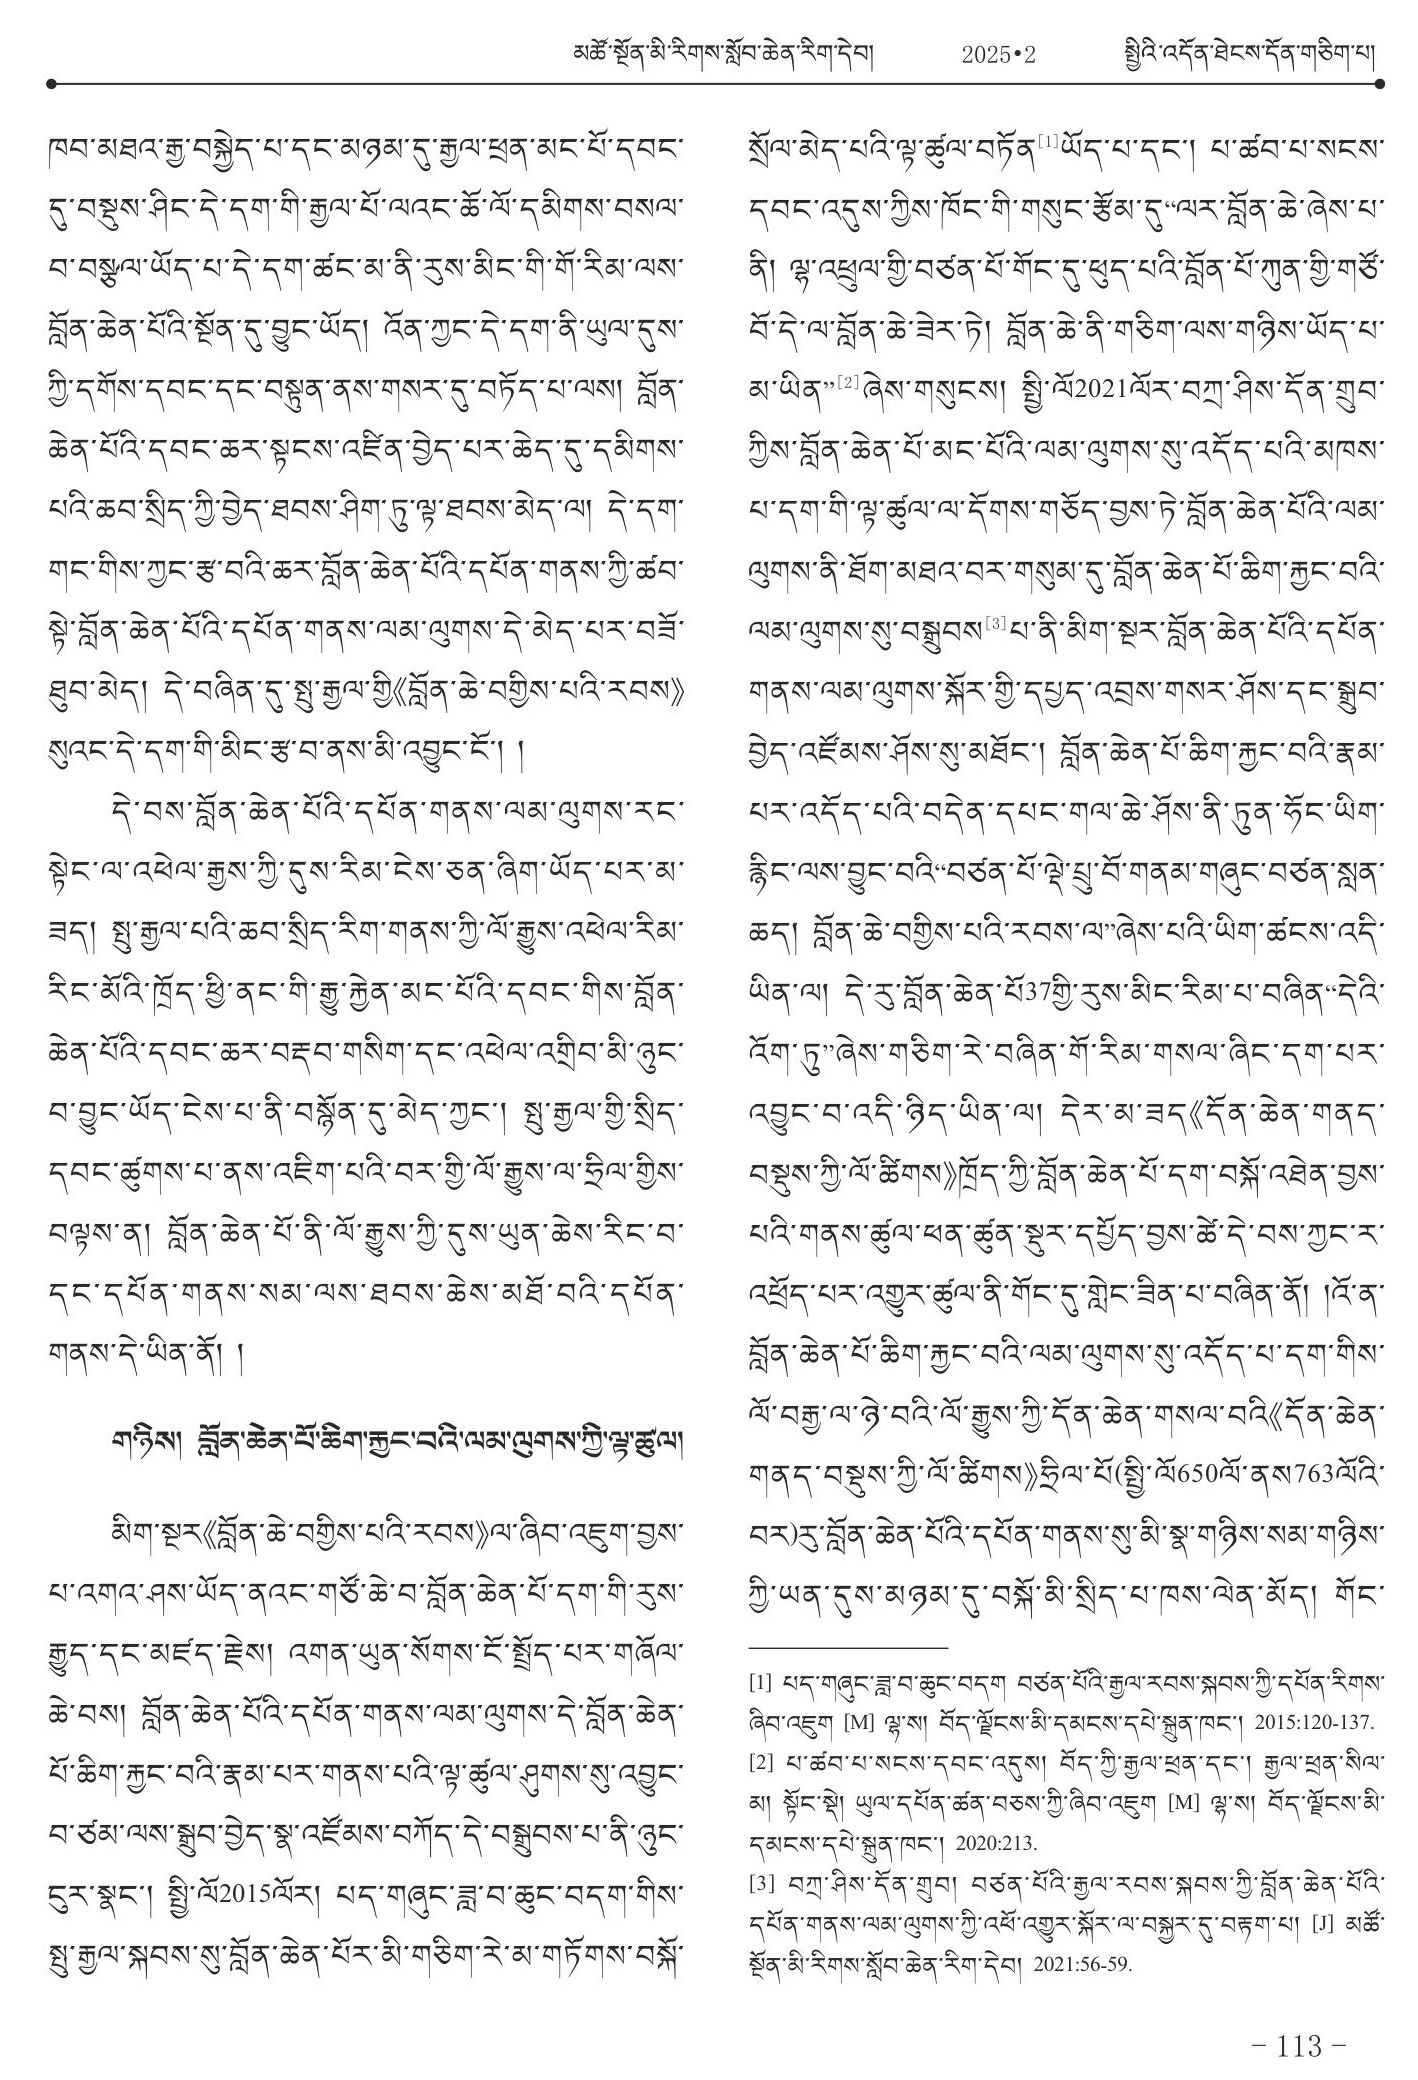 མཚོ་སྔོན་མི་རིགས་སློབ་ཆེན་རིག་དེབ། 2025•2 སྤྱིའི་འདོན་ཐེངས་དོན་གཅིག་པ།
ཁབ་མཐའ་རྒྱ་བསྐྱེད་པ་དང་མཉམ་དུ་རྒྱལ་ཕྲན་མང་པོ་དབང་
དུ་བསྡུས་ཤིང་དེ་དག་གི་རྒྱལ་པོ་ལའང་ཆོ་ལོ་དམིགས་བསལ་
བ་བསྩལ་ཡོད་པ་དེ་དག་ཚང་མ་ནི་རུས་མིང་གི་གོ་རིམ་ལས་
བློན་ཆེན་པོའི་སྔོན་དུ་བྱུང་ཡོད། འོན་ཀྱང་དེ་དག་ནི་ཡུལ་དུས་
ཀྱི་དགོས་དབང་དང་བསྟུན་ནས་གསར་དུ་བཏོད་པ་ལས། བློན་
ཆེན་པོའི་དབང་ཆར་སྟངས་འཛིན་བྱེད་པར་ཆེད་དུ་དམིགས་
པའི་ཆབ་སྲིད་ཀྱི་བྱེད་ཐབས་ཤིག་ཏུ་ལྟ་ཐབས་མེད་ལ། དེ་དག་
གང་གིས་ཀྱང་རྩ་བའི་ཆར་བློན་ཆེན་པོའི་དཔོན་གནས་ཀྱི་ཚབ་
སྟེ་བློན་ཆེན་པོའི་དཔོན་གནས་ལམ་ལུགས་དེ་མེད་པར་བཟོ་
ཐུབ་མེད། དེ་བཞིན་དུ་སྤུ་རྒྱལ་གྱི《བློན་ཆེ་བགྱིས་པའི་རབས》
སུའང་དེ་དག་གི་མིང་རྩ་བ་ནས་མི་འབྱུང་ངོ་། །
དེ་བས་བློན་ཆེན་པོའི་དཔོན་གནས་ལམ་ལུགས་རང་
སྟེང་ལ་འཕེལ་རྒྱས་ཀྱི་དུས་རིམ་ངེས་ཅན་ཞིག་ཡོད་པར་མ་
ཟད། སྤུ་རྒྱལ་པའི་ཆབ་སྲིད་རིག་གནས་ཀྱི་ལོ་རྒྱུས་འཕེལ་རིམ་
རིང་མོའི་ཁྲོད་ཕྱི་ནང་གི་རྒྱུ་རྐྱེན་མང་པོའི་དབང་གིས་བློན་
ཆེན་པོའི་དབང་ཆར་བརྡབ་གསིག་དང་འཕེལ་འགྲིབ་མི་ཉུང་
བ་བྱུང་ཡོད་ངེས་པ་ནི་བསྙོན་དུ་མེད་ཀྱང་། སྤུ་རྒྱལ་གྱི་སྲིད་
དབང་ཚུགས་པ་ནས་འཇིག་པའི་བར་གྱི་ལོ་རྒྱུས་ལ་ཧྲིལ་གྱིས་
བལྟས་ན། བློན་ཆེན་པོ་ནི་ལོ་རྒྱུས་ཀྱི་དུས་ཡུན་ཆེས་རིང་བ་
དང་དཔོན་གནས་སམ་ལས་ཐབས་ཆེས་མཐོ་བའི་དཔོན་
གནས་དེ་ཡིན་ནོ། །
གཉིས། བློན་ཆེན་པོ་ཆིག་རྐྱང་བའི་ལམ་ལུགས་ཀྱི་ལྟ་ཚུལ།
མིག་སྔར《བློན་ཆེ་བགྱིས་པའི་རབས》ལ་ཞིབ་འཇུག་བྱས་
པ་འགའ་ཤས་ཡོད་ནའང་གཙོ་ཆེ་བ་བློན་ཆེན་པོ་དག་གི་རུས་
རྒྱུད་དང་མཛད་རྗེས། འགན་ཡུན་སོགས་ངོ་སྤྲོད་པར་གཞོལ་
ཆེ་བས། བློན་ཆེན་པོའི་དཔོན་གནས་ལམ་ལུགས་དེ་བློན་ཆེན་
པོ་ཆིག་རྐྱང་བའི་རྣམ་པར་གནས་པའི་ལྟ་ཚུལ་ཤུགས་སུ་འབྱུང་
བ་ཙམ་ལས་སྒྲུབ་བྱེད་སྣ་འཛོམས་བཀོད་དེ་བསྒྲུབས་པ་ནི་ཉུང་
ངུར་སྣང་། སྤྱི་ལོ2015ལོར། པད་གཞུང་ཟླ་བ་ཆུང་བདག་གིས་
སྤུ་རྒྱལ་སྐབས་སུ་བློན་ཆེན་པོར་མི་གཅིག་རེ་མ་གཏོགས་བསྐོ་
སྲོལ་མེད་པའི་ལྟ་ཚུལ་བཏོན[1]ཡོད་པ་དང་། པ་ཚབ་པ་སངས་
དབང་འདུས་ཀྱིས་ཁོང་གི་གསུང་རྩོམ་དུ“ལར་བློན་ཆེ་ཞེས་པ་
ནི། ལྷ་འཕྲུལ་གྱི་བཙན་པོ་གོང་དུ་ཕུད་པའི་བློན་པོ་ཀུན་གྱི་གཙོ་
བོ་དེ་ལ་བློན་ཆེ་ཟེར་ཏེ། བློན་ཆེ་ནི་གཅིག་ལས་གཉིས་ཡོད་པ་
མ་ཡིན”[2]ཞེས་གསུངས། སྤྱི་ལོ2021ལོར་བཀྲ་ཤིས་དོན་གྲུབ་
ཀྱིས་བློན་ཆེན་པོ་མང་པོའི་ལམ་ལུགས་སུ་འདོད་པའི་མཁས་
པ་དག་གི་ལྟ་ཚུལ་ལ་དོགས་གཅོད་བྱས་ཏེ་བློན་ཆེན་པོའི་ལམ་
ལུགས་ནི་ཐོག་མཐའ་བར་གསུམ་དུ་བློན་ཆེན་པོ་ཆིག་རྐྱང་བའི་
ལམ་ལུགས་སུ་བསྒྲུབས[3]པ་ནི་མིག་སྔར་བློན་ཆེན་པོའི་དཔོན་
གནས་ལམ་ལུགས་སྐོར་གྱི་དཔྱད་འབྲས་གསར་ཤོས་དང་སྒྲུབ་
བྱེད་འཛོམས་ཤོས་སུ་མཐོང་། བློན་ཆེན་པོ་ཆིག་རྐྱང་བའི་རྣམ་
པར་འདོད་པའི་བདེན་དཔང་གལ་ཆེ་ཤོས་ནི་ཏུན་ཧོང་ཡིག་
རྙིང་ལས་བྱུང་བའི“བཙན་པོ་ལྡེ་པྲུ་བོ་གནམ་གཞུང་བཙན་སླན་
ཆད། བློན་ཆེ་བགྱིས་པའི་རབས་ལ”ཞེས་པའི་ཡིག་ཚངས་འདི་
ཡིན་ལ། དེ་རུ་བློན་ཆེན་པོ37གྱི་རུས་མིང་རིམ་པ་བཞིན“དེའི་
འོག་ཏུ”ཞེས་གཅིག་རེ་བཞིན་གོ་རིམ་གསལ་ཞིང་དག་པར་
འབྱུང་བ་འདི་ཉིད་ཡིན་ལ། དེར་མ་ཟད《དོན་ཆེན་གནད་
བསྡུས་ཀྱི་ལོ་ཚིགས》ཁྲོད་ཀྱི་བློན་ཆེན་པོ་དག་བསྐོ་འཐེན་བྱས་
པའི་གནས་ཚུལ་ཕན་ཚུན་སྡུར་དཔྱོད་བྱས་ཚེ་དེ་བས་ཀྱང་ར་
འཕྲོད་པར་འགྱུར་ཚུལ་ནི་གོང་དུ་གླེང་ཟིན་པ་བཞིན་ནོ། །འོ་ན་
བློན་ཆེན་པོ་ཆིག་རྐྱང་བའི་ལམ་ལུགས་སུ་འདོད་པ་དག་གིས་
ལོ་བརྒྱ་ལ་ཉེ་བའི་ལོ་རྒྱུས་ཀྱི་དོན་ཆེན་གསལ་བའི《དོན་ཆེན་
གནད་བསྡུས་ཀྱི་ལོ་ཚིགས》ཧྲིལ་པོ(སྤྱི་ལོ650ལོ་ནས763ལོའི་
བར)རུ་བློན་ཆེན་པོའི་དཔོན་གནས་སུ་མི་སྣ་གཉིས་སམ་གཉིས་
ཀྱི་ཡན་དུས་མཉམ་དུ་བསྐོ་མི་སྲིད་པ་ཁས་ལེན་མོད། གོང་
[1] པད་གཞུང་ཟླ་བ་ཆུང་བདག བཙན་པོའི་རྒྱལ་རབས་སྐབས་ཀྱི་དཔོན་རིགས་
ཞིབ་འཇུག [M] ལྷ་ས། བོད་ལྗོངས་མི་དམངས་དཔེ་སྐྲུན་ཁང་། 2015:120-137.
[2] པ་ཚབ་པ་སངས་དབང་འདུས། བོད་ཀྱི་རྒྱལ་ཕྲན་དང་། རྒྱལ་ཕྲན་སིལ་
མ། སྟོང་སྡེ། ཡུལ་དཔོན་ཚན་བཅས་ཀྱི་ཞིབ་འཇུག [M] ལྷ་ས། བོད་ལྗོངས་མི་
དམངས་དཔེ་སྐྲུན་ཁང་། 2020:213.
[3] བཀྲ་ཤིས་དོན་གྲུབ། བཙན་པོའི་རྒྱལ་རབས་སྐབས་ཀྱི་བློན་ཆེན་པོའི་
དཔོན་གནས་ལམ་ལུགས་ཀྱི་འཕོ་འགྱུར་སྐོར་ལ་བསྐྱར་དུ་བརྟག་པ། [J] མཚོ་
སྔོན་མི་རིགས་སློབ་ཆེན་རིག་དེབ། 2021:56-59.
– 113 –